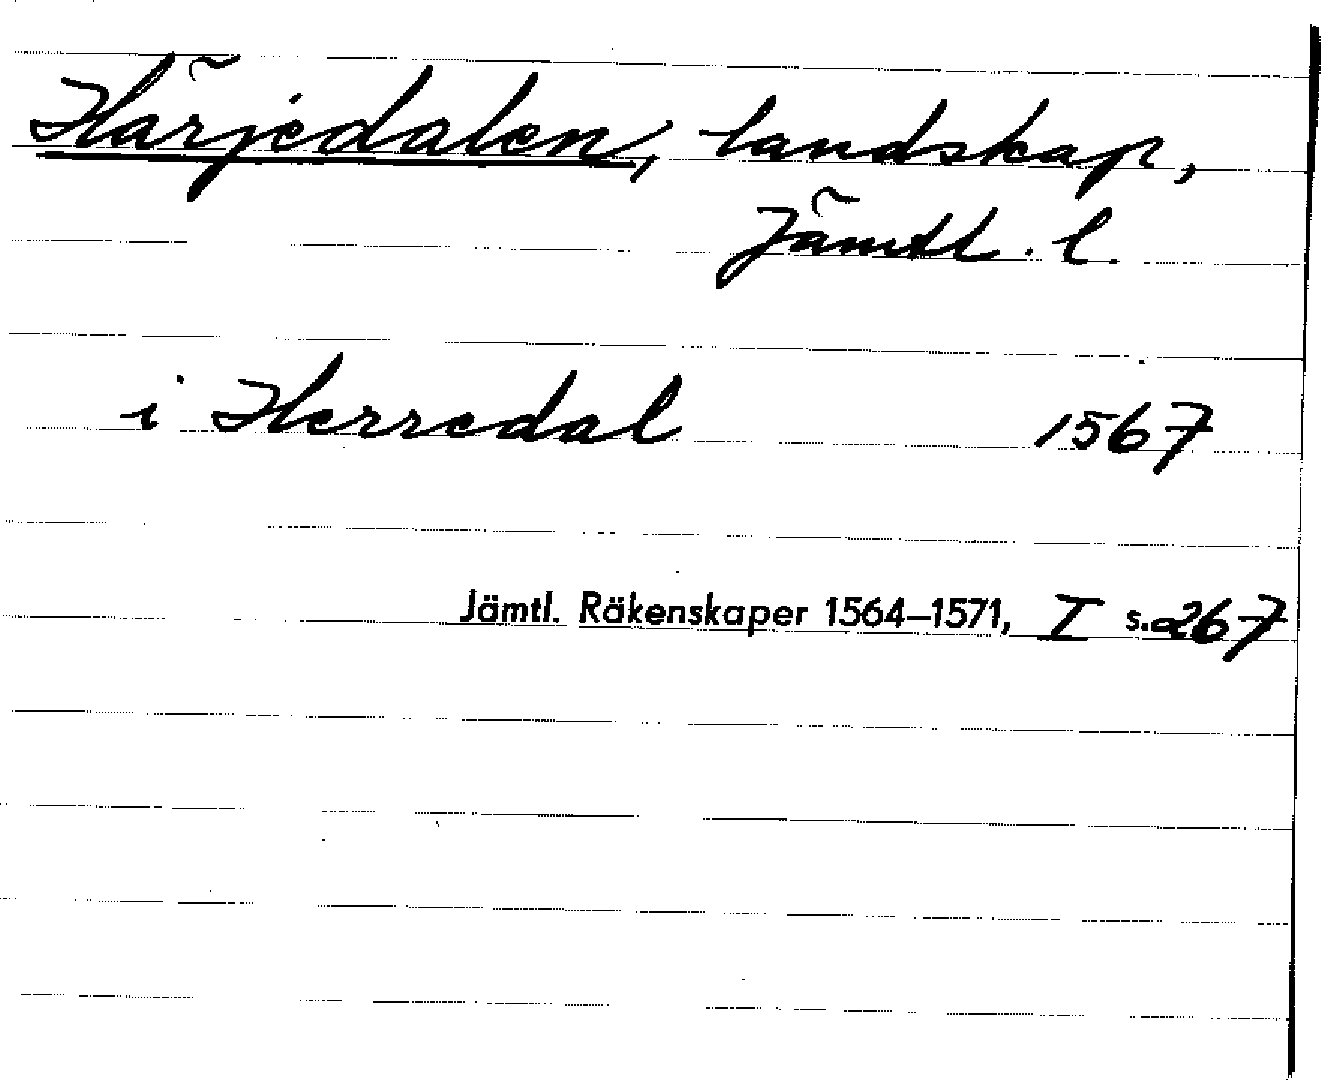 Härjedalen, landskap,
Jämtl. l.
i Herredal 1567
Jämtl. Räkenskaper 1564–1571, I s. 267